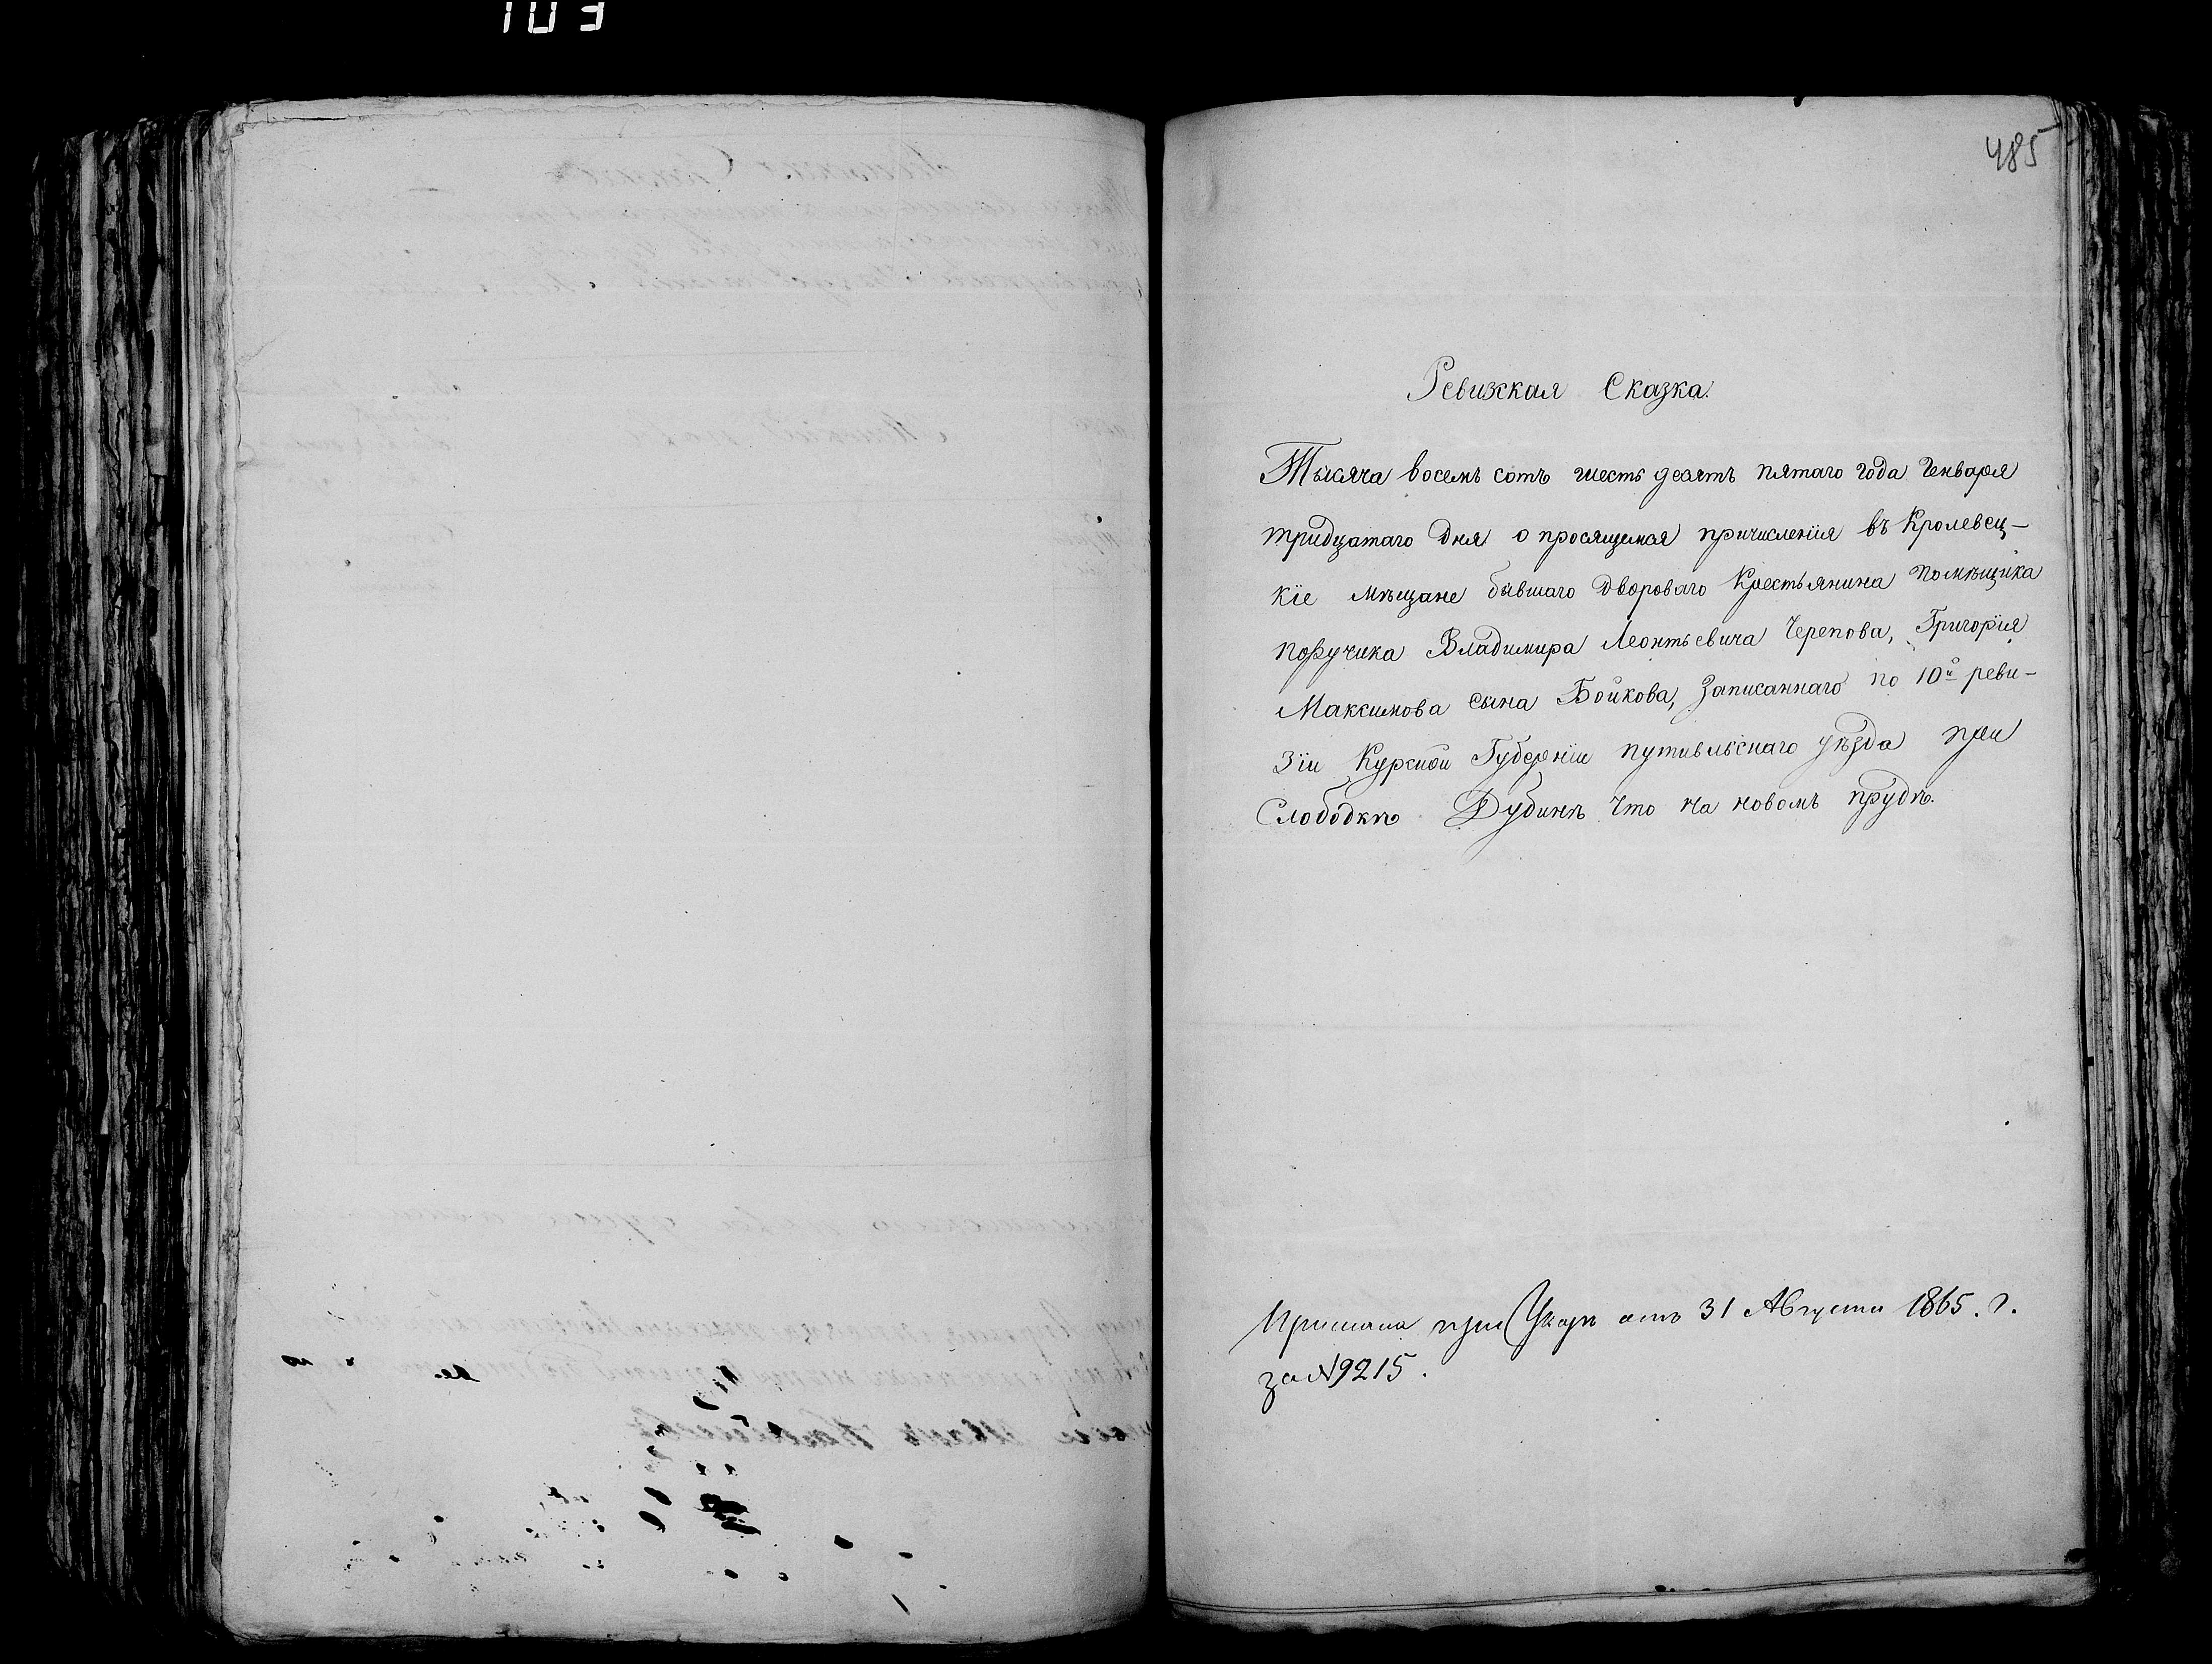 103
485
Ревизская Сказка.
Тысяча восемь сотъ шесть десятъ пятаго года Генваря
тридцатаго дня о просящемся причисленія въ Кролевец-
кіе мѣщане бывшаго двороваго Крестьянина помѣщика
поручика Владимира Леонтьевича Черепова, Григорія
Максимова сына Бойкова, Записаннаго по 10й реви-
зіи Курской Губерніи путивльскаго уѣзда при
Слободкѣ Дубинѣ что на новомъ прудѣ.
При указѣ отъ 31 Августа 1865. г.
за №9215.